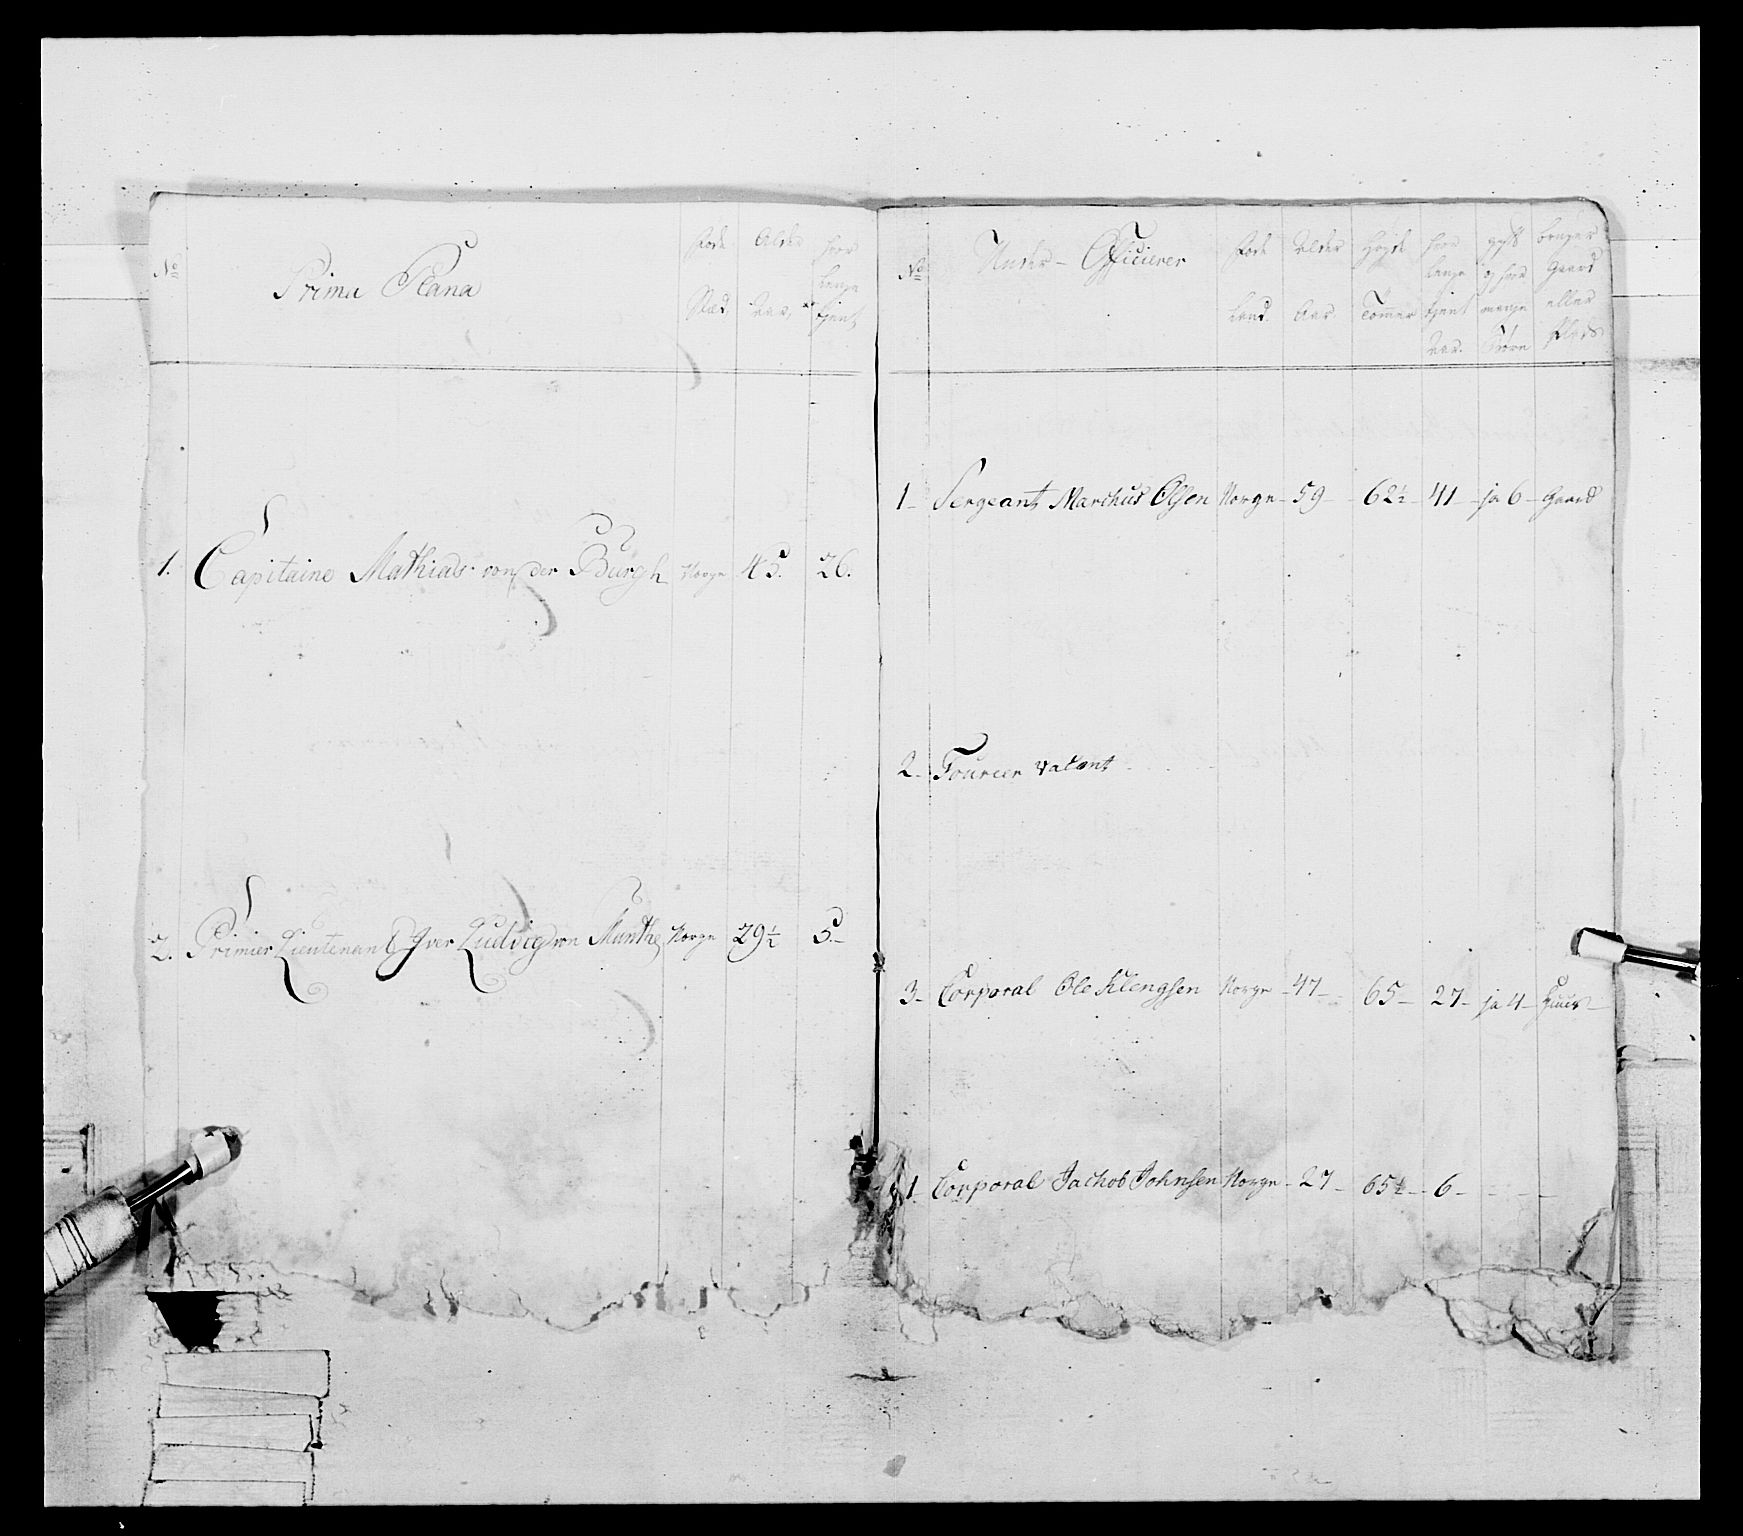 No
Prima Plana
Føde Stæd.
Alder Aar.
hvor lenge tjent
1. Capitaine Mathias von der Burgh Norge 45. 26.
2. Primier Lieutenant Iver Ludvig von Munthe Norge 29½ 5.-
No
Under-Officierer
Føde Land.
Alder Aar
Høyde Tommer
hvor lenge tjent Aar.
gift og hvor mange Børn
bruger Gaard eller Plads
1- Sergeant Marchus Olsen Norge- 59- 62½- 41- ja 6- Gaard
2- Fourier vacant
3- Corporal Ole Klengsen Norge -47- 65- 27- ja 4- Huus-
1- Corporal Jachob Johnsen Norge- 27- 65½- 6- - - -